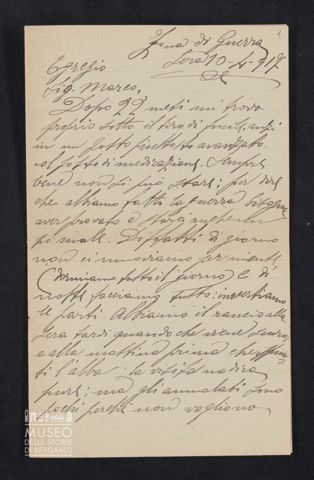 1
Zona di Guerra
lì 10-4-917
Egregio
Sig. Mares,
Dopo 22 mesi mi trovo
proprio sotto il tiro di fucile, anzi
in un posto piuttosto avanzato
col posto di medicazione. Sempre
bene non si può stare: per dire
che abbiamo fatta la guerra bisogna
aver provato a star anche un
pò male. Difatti di giorno
non ci muoviamo per niente
Dormiamo tutto il giorno e di
notte facciamo tutto: invertiamo
le parti. Abbiamo il rancio alla
sera tardi quando che viene scuro,
e alla mattina prima che spunti
l'alba: la visita medica
pure; ma gli ammalati sono
pochi perchè non vogliono
MUSEO
DELLE STORIE
DI BERGAMO